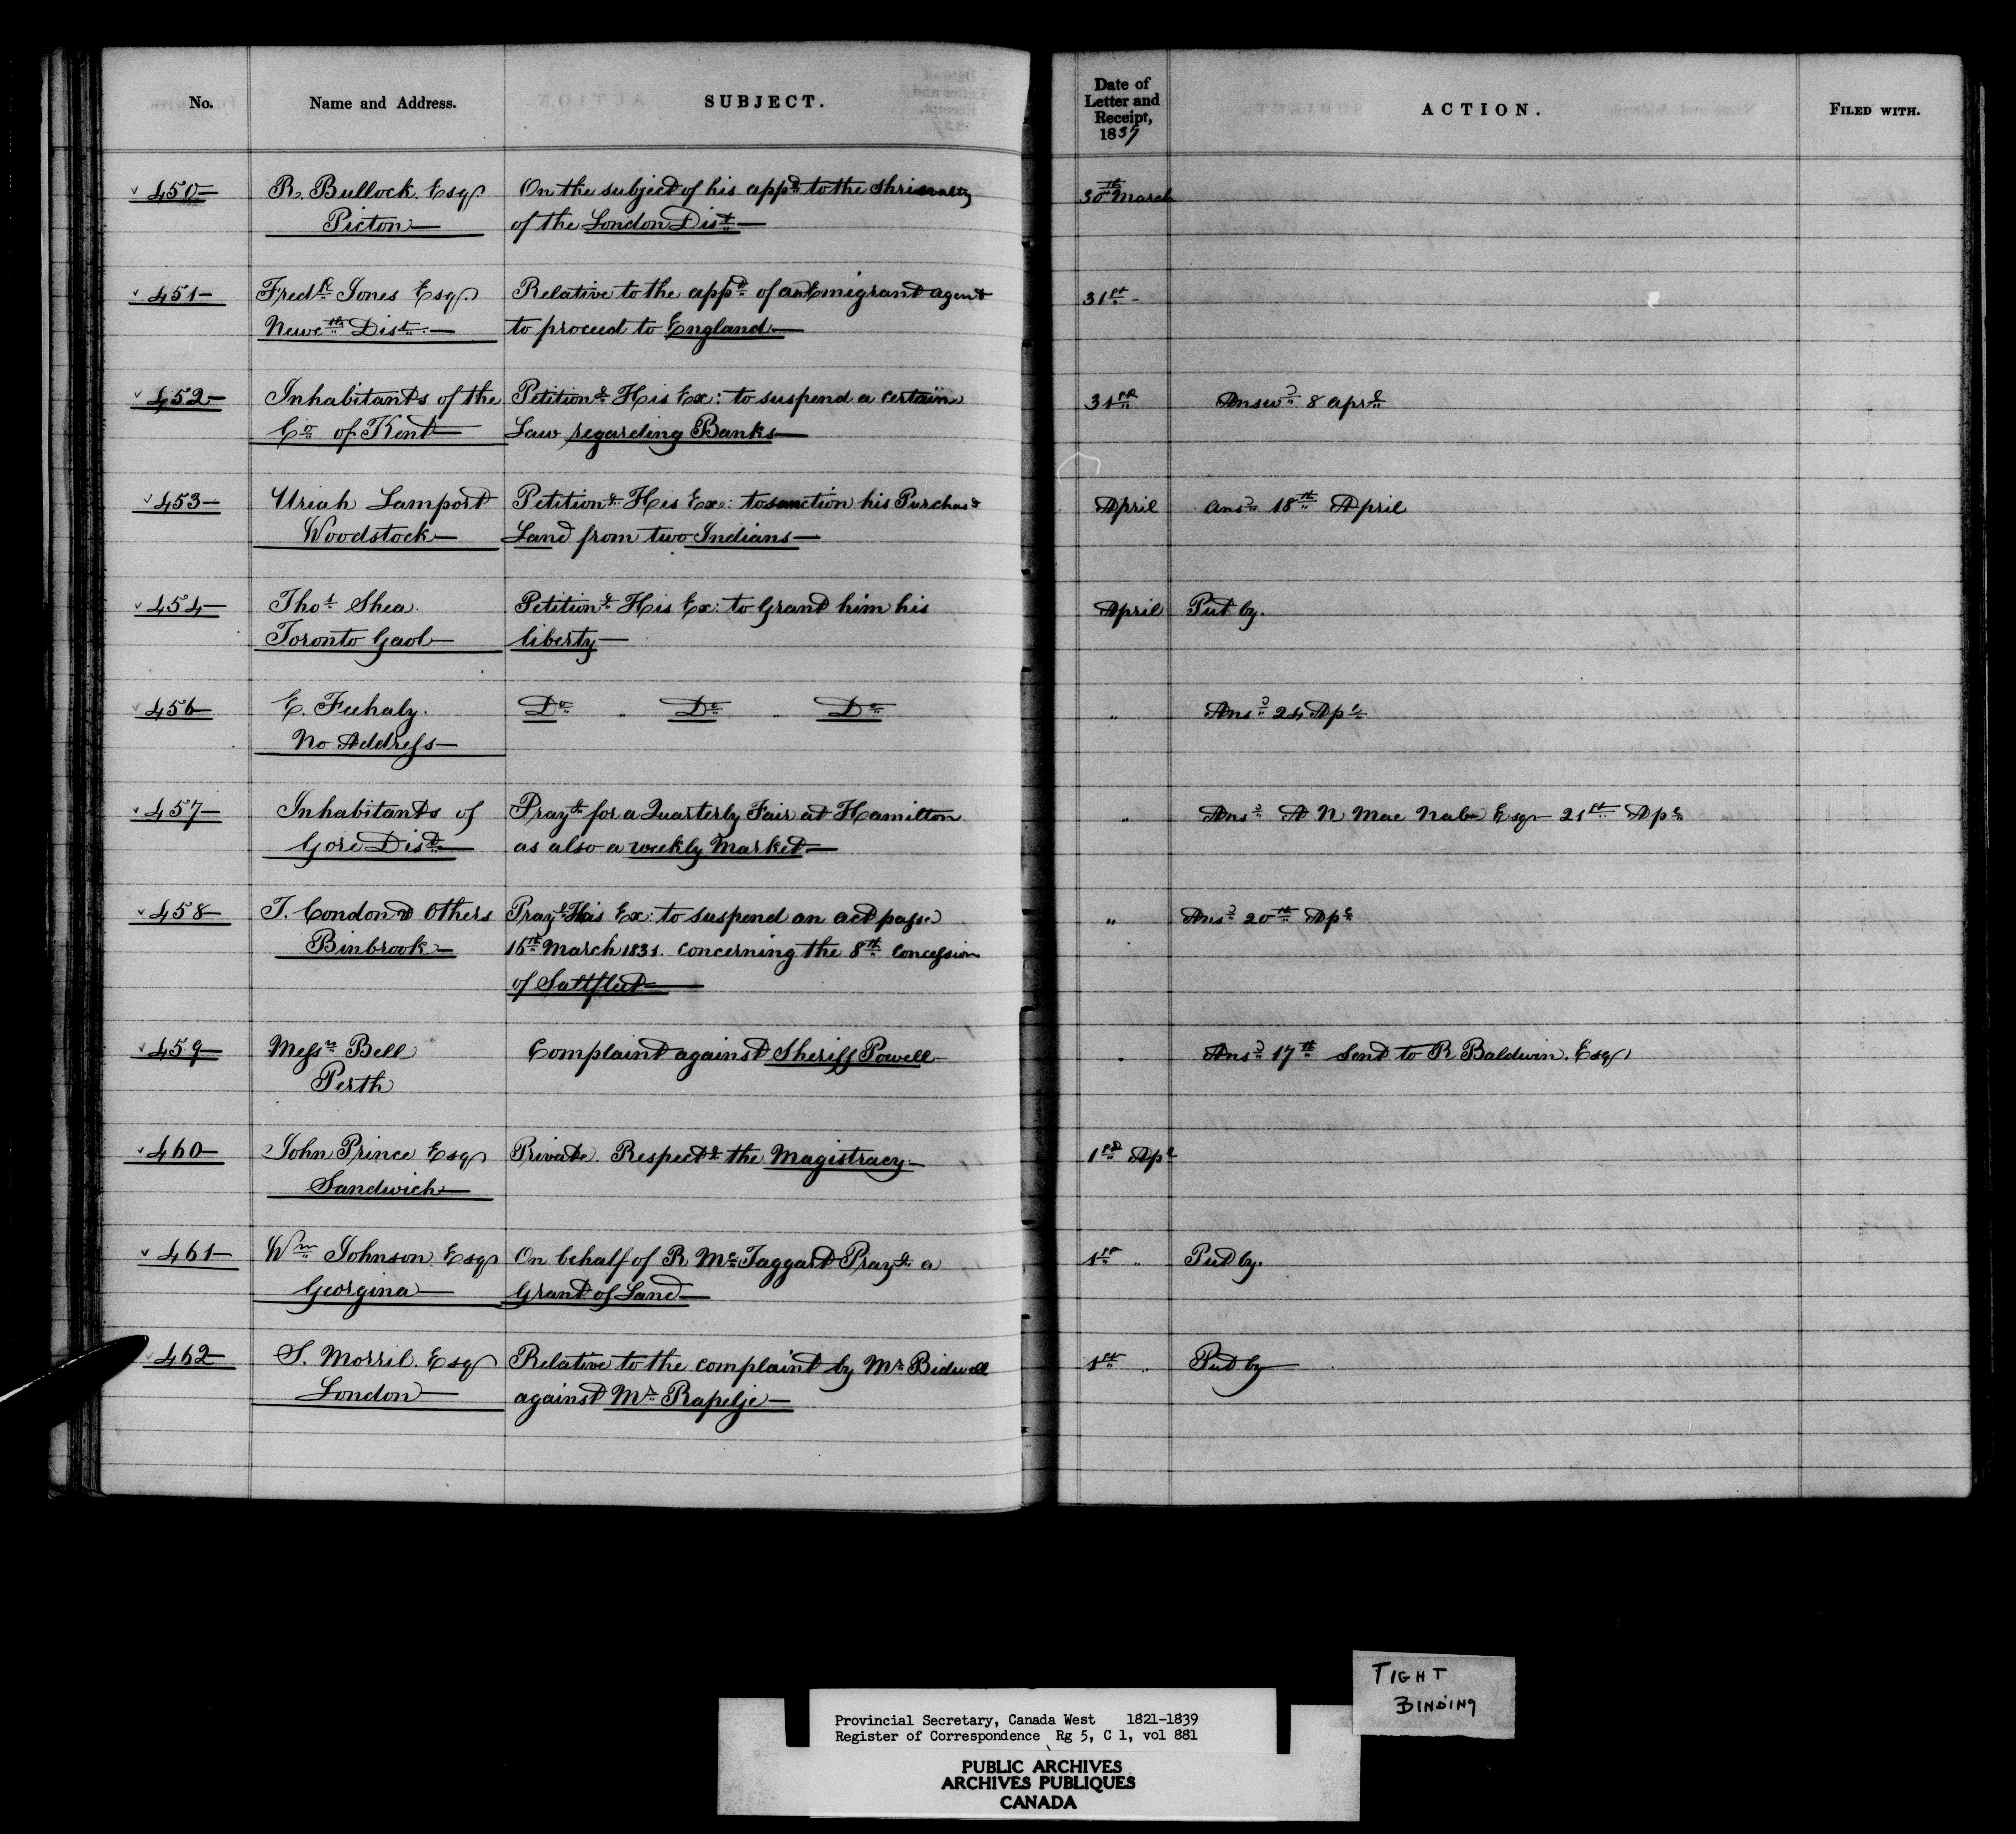 No. Name and Address. SUBJECT. Date of Letter and Receipt, 1837 ACTION. FILED WITH.
450— R. Bullock. Esqr. On the subject of his appt. to the Shrievalty 30th March
Picton— of the London Dist.—
451— Fredk. Jones Esqr. Relative to the appt. of an Emigrant agent 31st—
Newctle Dist.— to proceed to England—
452— Inhabitants of the Petitiong. His Ex: to suspend a certain 31st Answd. 8 aprl.
Co. of Kent— Law regarding Banks—
453— Uriah Lamport Petitiong. His Ex: to sanction his Purchasg April Ansd. 18th April
Woodstock— Land from two Indians—
454— Thos. Shea. Petitiong. His Ex: to Grant him his April Put by.
Toronto Gaol— liberty—
456— E. Feehaly. Do. " Do. " Do. " Ansd. 24 Apl.
No Address—
457— Inhabitants of Prayg. for a Quarterly Fair at Hamilton " Ansd. A N Mac Nab Esqr— 21st Apl.
Gore Dist.— as also a weekly Market—
458— T. Condon & Others Prayg. His Ex: to suspend an act passed " Ansd. 20th Apl.
Binbrook— 16th March 1831. concerning the 8th Concession
of Saltfleet—
459— Messrs. Bell Complaint against Sheriff Powell— " Ansd. 17th Sent to R Baldwin. Esqr
Perth
460— John Prince Esqr Private. Respectg. the Magistracy— 1st Apl
Sandwich—
461— Wm. Johnson Esqr On behalf of R McTaggart Prayg. a 1st " Put by.
Georgina— Grant of Land—
462— S. Morril. Esqr Relative to the complaint by Mr. Bidwell 1st " Put by—
London— against Mr. Rapelje—
TIGHT
BINDING
Provincial Secretary, Canada West 1821-1839
Register of Correspondence Rg 5, C 1, vol 881
PUBLIC ARCHIVES
ARCHIVES PUBLIQUES
CANADA